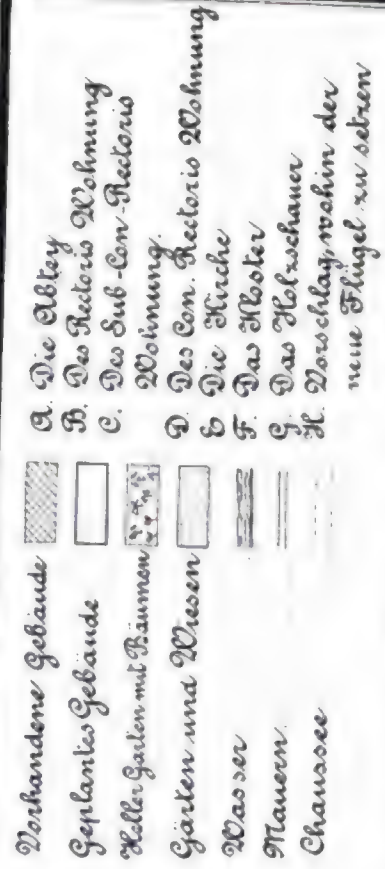 Vorhandene Gebäude
Geplantes Gebäude
Heller Garten mit Bäumen
Gärten und Wiesen
Wasser
Mauern
Chaussee
A. Die Abtey
B. Des Rectoris Wohnung
C. Des Sub-Con-Rectoris
Wohnung.
D. Des Con. Rectoris Wohnung
E Die Kirche
F. Das Kloster
G. Das Holzschauer
H. Vorschlag, wohin der
neue Flügel zu setzen